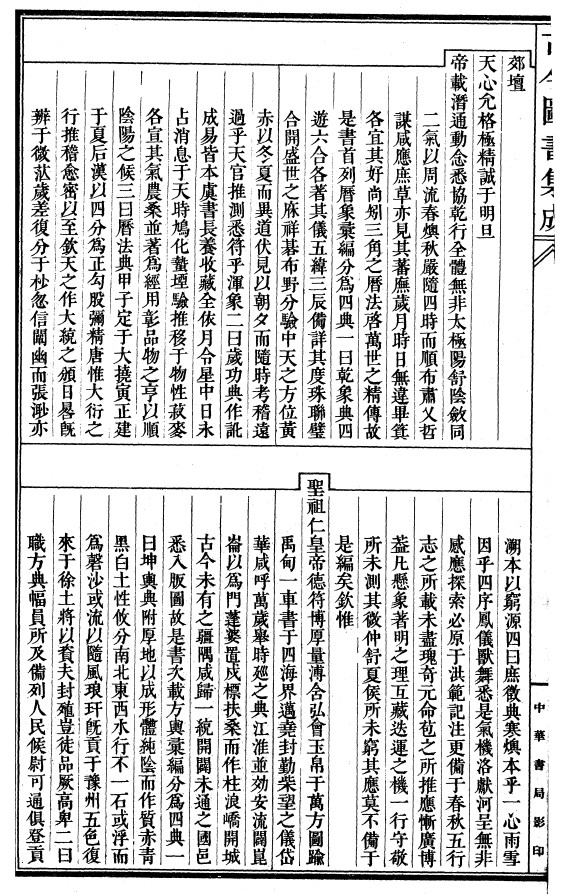 古今圖書集成
郊壇
天心允格極精誠于明旦
帝載潛通動念悉協乾行全體無非太極陽舒陰斂同
二氣以周流春燠秋嚴隨四時而順布肅乂哲
謀咸應庶草亦見其蕃廡歲月時日無違畢箕
各宜其好尚矧三角之曆法啓萬世之精傳故
是書首列曆象彙編分爲四典一曰乾象典四
遊六合各著其儀五緯三辰備詳其度珠聯璧
合開盛世之庥祥碁布野分驗中天之方位黃
赤以冬夏而異道伏見以朝夕而隨時考稽遠
過乎天官推測悉符乎渾象二曰歲功典作訛
成易皆本虞書長養收藏全依月令星中日永
占消息于天時鳩化蟄墐驗推移于物性菽麥
各宜其氣農桑並著爲經用彰品物之亨以順
陰陽之候三曰曆法典甲子定于大撓寅正建
于夏后漢以四分爲正勾股彌精唐惟大衍之
行推稽愈密以至欽天之作大統之頒日晷旣
辨于微茫歲差復分于杪忽信闡幽而張渺亦
溯本以窮源四曰庶徵典寒燠本乎一心雨雪
因乎四序鳳儀獸舞悉是氣機洛獻河呈無非
感應探索必原于洪範記注更備于春秋五行
志之所載未盡瑰奇元命苞之所推應慚廣博
葢凡懸象著明之理互藏迭運之機一行守敬
所未測其微仲舒夏侯所未窮其應莫不備于
是編矣欽惟
聖祖仁皇帝德符博厚量溥含弘會玉帛于萬方圖踰
禹甸一車書于四海界邁堯封勤柴望之儀岱
華咸呼萬歲舉時廵之典江淮並効安流闢崑
崙以爲門蓬婆置戍標扶桑而作柱浪嶠開城
古今未有之疆隅咸歸一統開闢未通之國邑
悉入版圖故是書次載方輿彙編分爲四典一
曰坤輿典附厚地以成形體純陰而作質赤靑
黑白土性攸分南北東西水行不一石或浮而
爲磬沙或流以隨風琅玕旣貢于豫州五色復
來于徐土將以賁夫封殖豈徒品厥高卑二曰
職方典幅員所及備列人民候尉可通俱登貢
中華書局影印